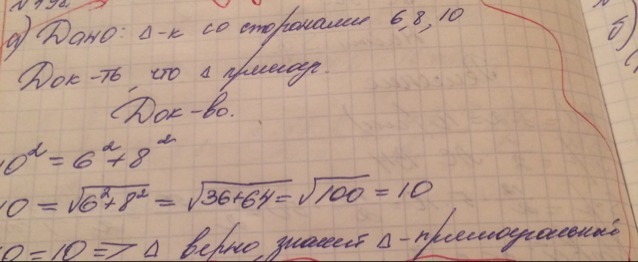 а) Дано: Δ-к со сторонами 6, 8, 10
б)
Док-ть, что Δ прямоуг.
Док-во.
10² = 6² + 8²
10 = √6²+8² = √36+64 = √100 = 10
10 = 10 => Δ верно, значит Δ-прямоугольный